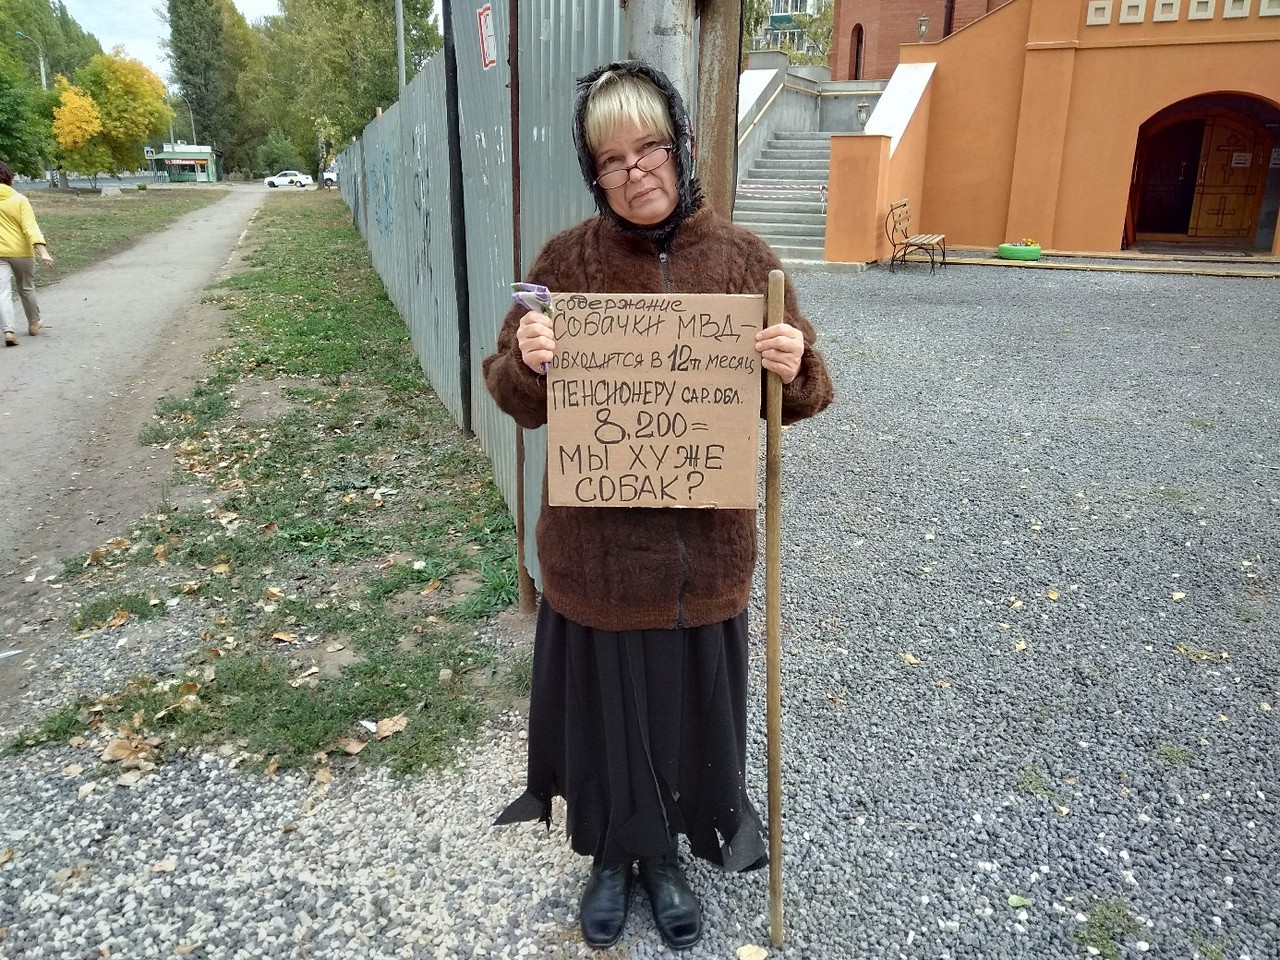 содержание
СОБАЧКИ МВД-
ОБХОДИТСЯ В 12т месяц
ПЕНСИОНЕРУ САР. ОБЛ.
8.200=
МЫ ХУЖЕ
СОБАК?